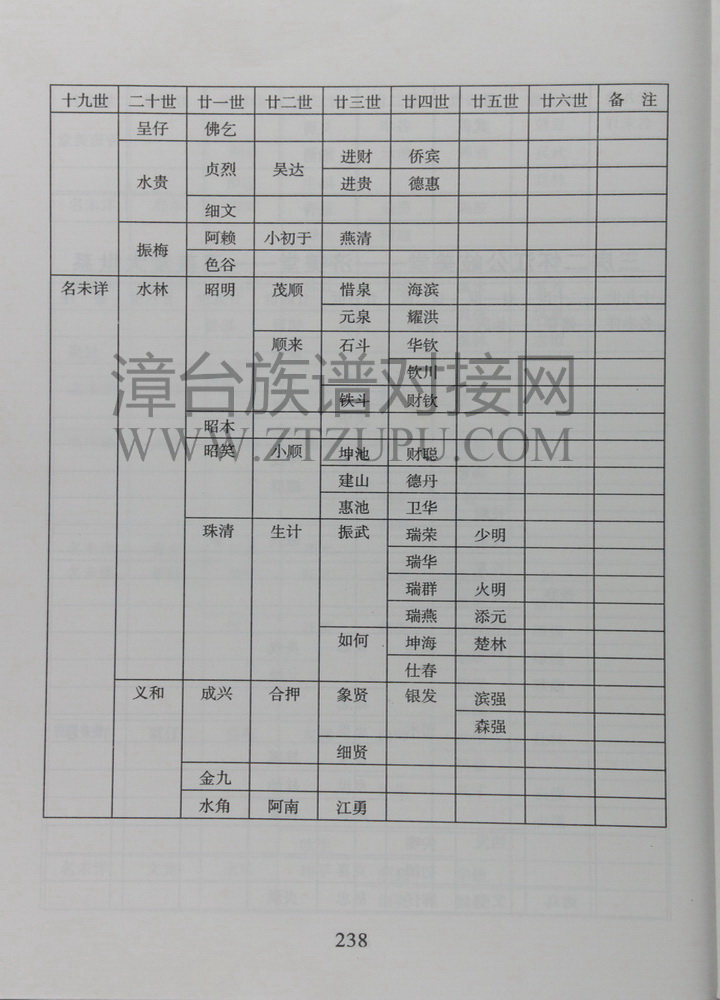 十九世 二十世 廿一世 廿二世 廿三世 廿四世 廿五世 廿六世 备 注
呈仔 佛乞
水贵 贞烈 吴达 进财 侨宾
进贵 德惠
细文
振梅 阿赖 小初于 燕清
色谷
名未详 水林 昭明 茂顺 惜泉 海滨
元泉 耀洪
顺来 石斗 华钦
钦川
铁斗 财钦
昭本
昭笑 小顺 坤池 财聪
建山 德丹
惠池 卫华
珠清 生计 振武 瑞荣 少明
瑞华
瑞群 火明
瑞燕 添元
如何 坤海 楚林
仕春
义和 成兴 合押 象贤 银发 滨强
森强
细贤
金九
水角 阿南 江勇
漳台族谱对接网
WWW.ZTZUPU.COM
238